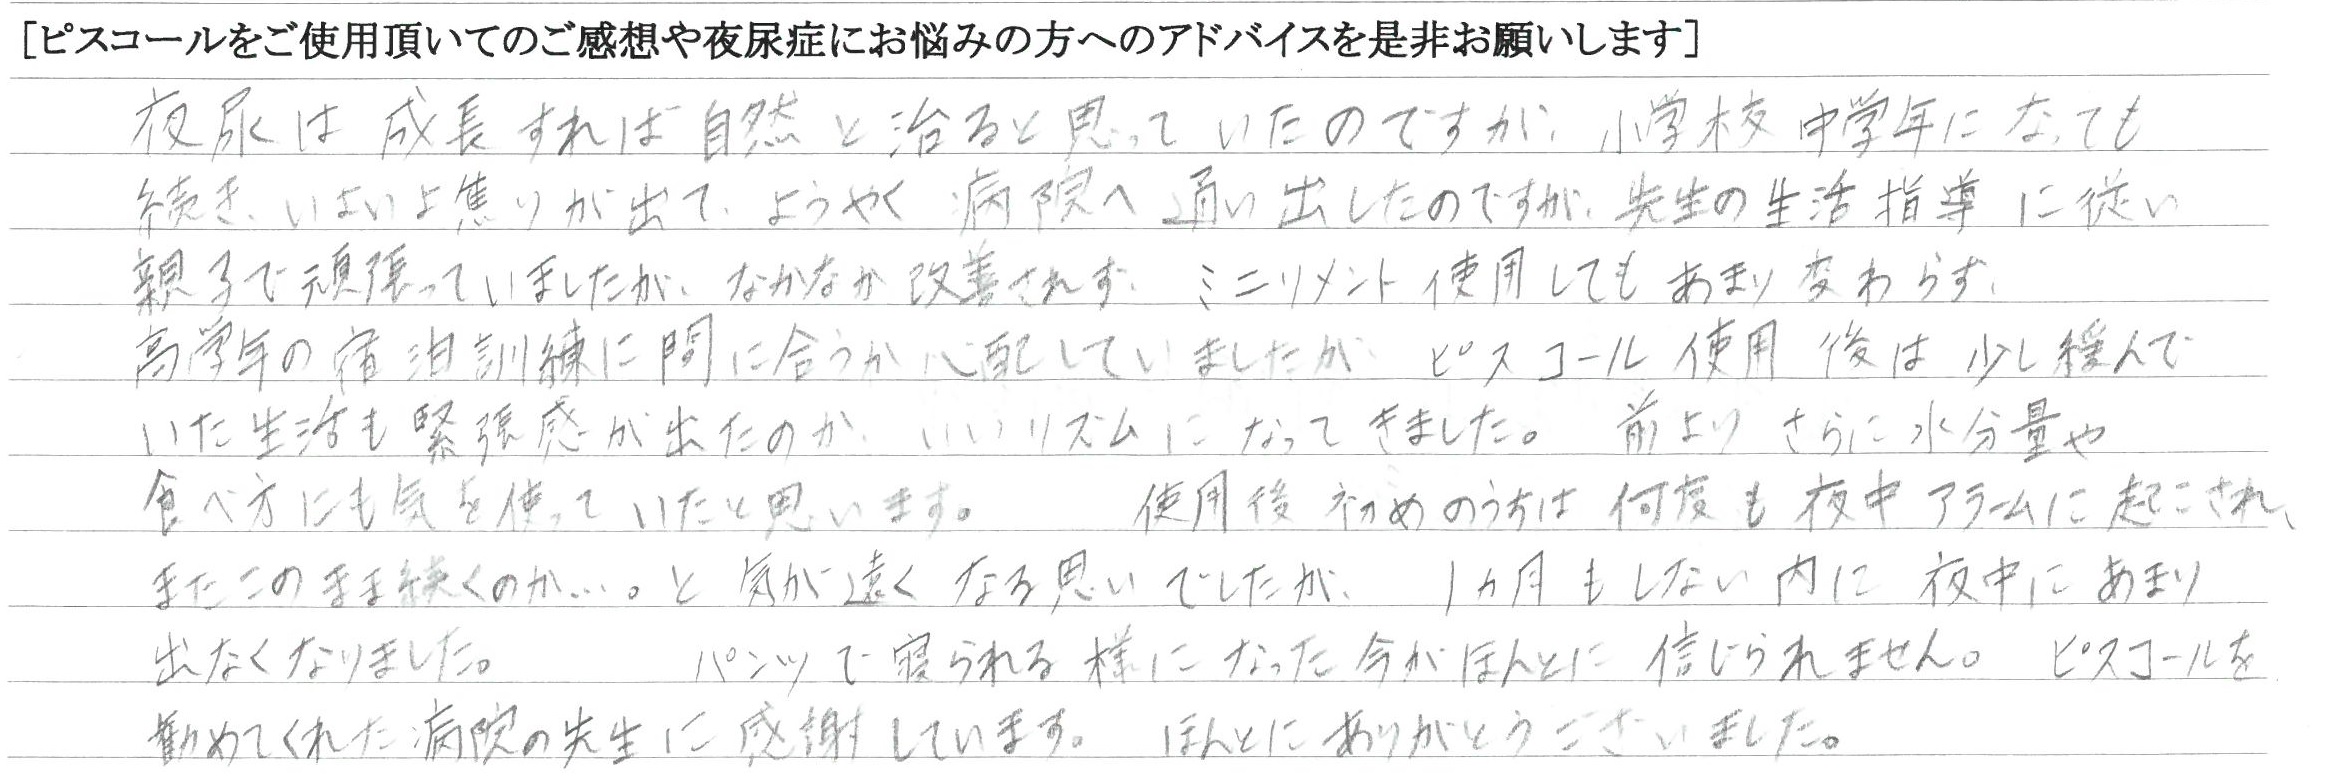 [ピスコールをご使用頂いてのご感想や夜尿症にお悩みの方へのアドバイスを是非お願いします]
夜尿は成長すれば自然と治ると思っていたのですが、小学校中学年になっても
続き、いよいよ焦りが出て、ようやく病院へ通い出したのですが、先生の生活指導に従い
親子で頑張っていましたが、なかなか改善されず、ミニリメント使用してもあまり変わらず、
高学年の宿泊訓練に間に合うか心配していましたが ピスコール使用後は少し緩んで
いた生活も緊張感が出たのか、いいリズムになってきました。 前よりさらに水分量や
食べ方にも気を使っていたと思います。 使用後初めのうちは何度も夜中アラームに起こされ、
またこのまま続くのか…。と気が遠くなる思いでしたが、1ヵ月もしない内に夜中にあまり
出なくなりました。 パンツで寝られる様になった今がほんとに信じられません。 ピスコールを
勧めてくれた病院の先生に感謝しています。 ほんとにありがとうございました。